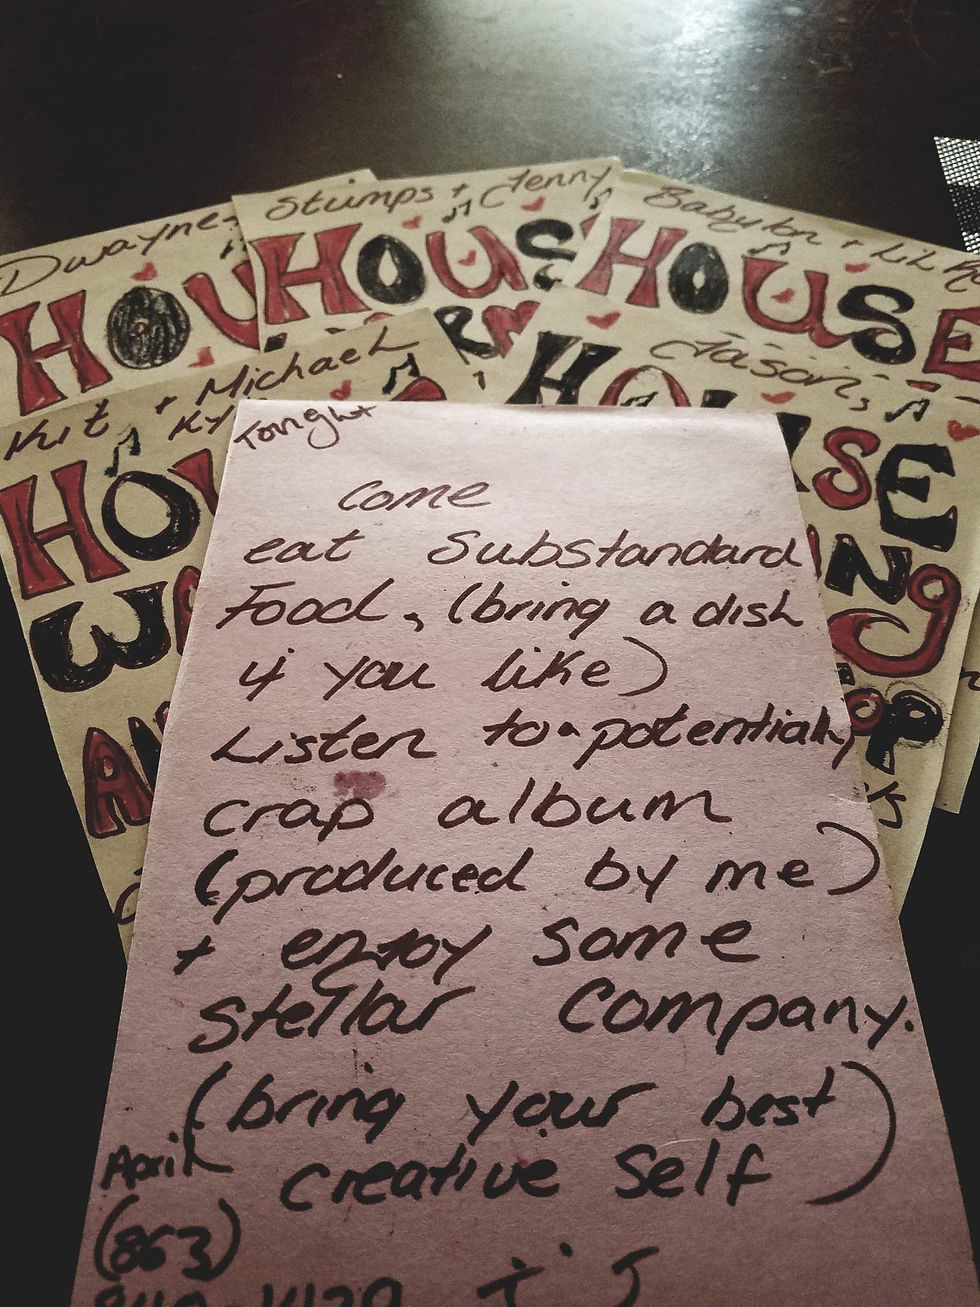 Dwayne
HOU
Stumps + Jenny
HOUS
Babylon + LiL
HOUSE
Kit + Michael
HOU
WA
AN
Jason,
HOUSE
NG
OP
Tonight
Come
eat Substandard
Food, (bring a dish
if you like)
Listen to potentially
crap album
(produced by me)
+ enjoy some
stellar Company.
(bring your best
creative self)
April
(863)